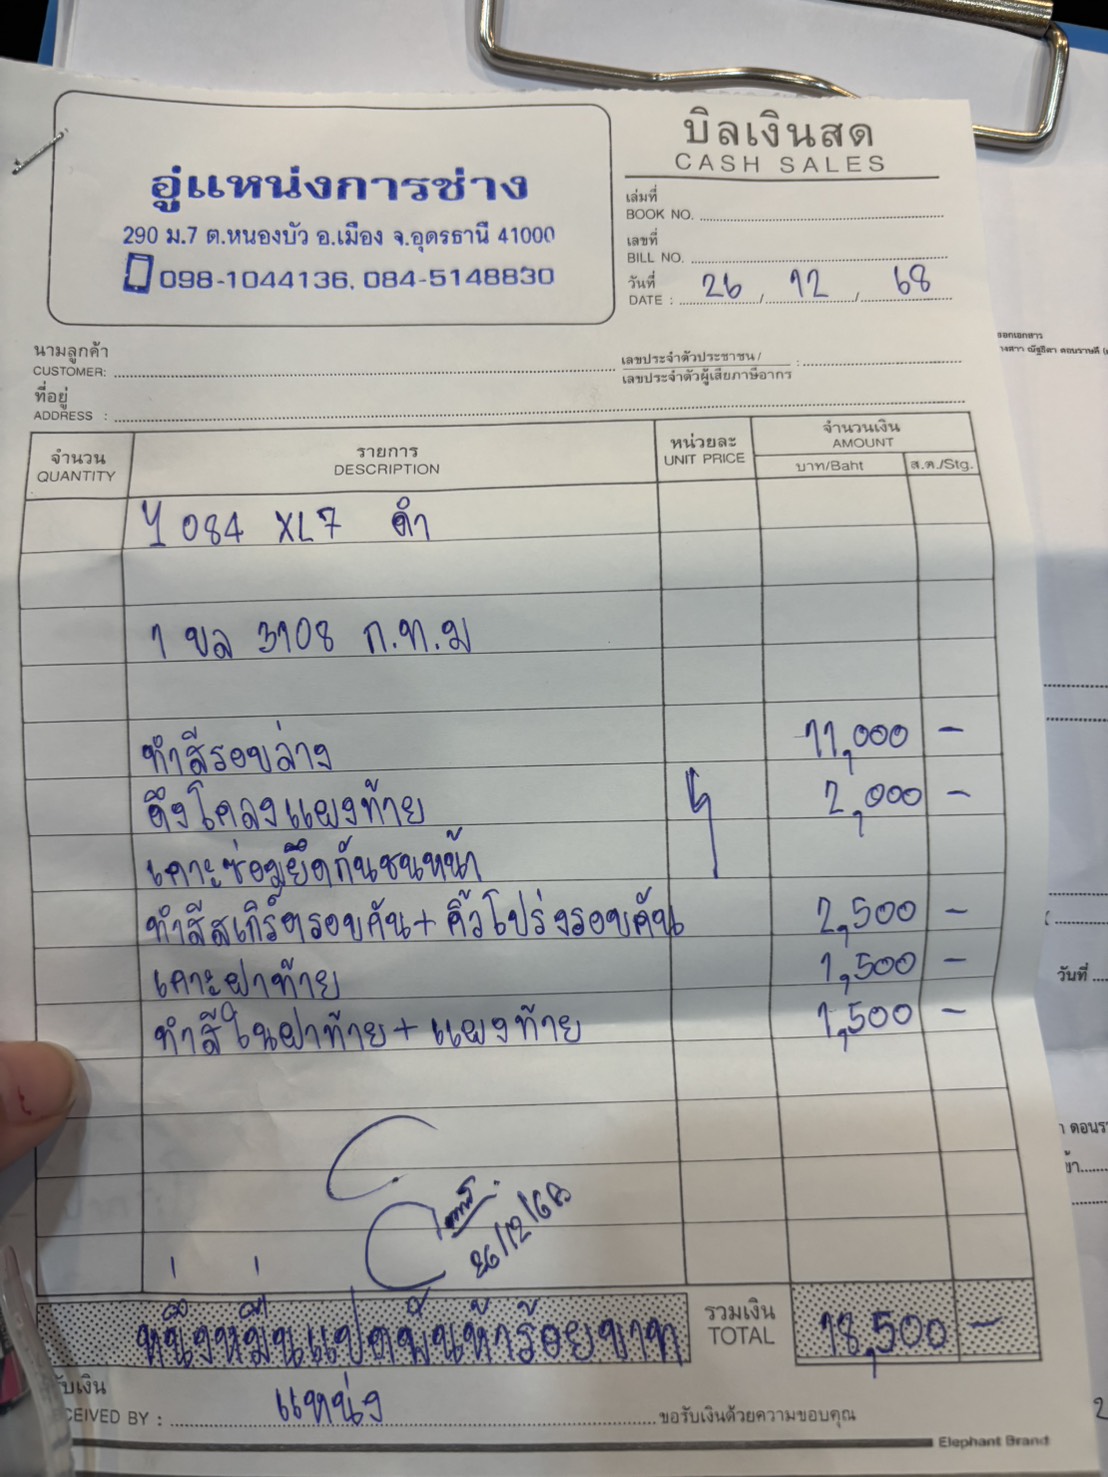 อู่แหน่งการช่าง
290 ม.7 ต.หนองบัว อ.เมือง จ.อุดรธานี 41000
098-1044136, 084-5148830
บิลเงินสด
CASH SALES
เล่มที่
BOOK NO.
เลขที่
BILL NO.
วันที่
DATE : 26 / 12 / 68
นามลูกค้า
CUSTOMER:
เลขประจำตัวประชาชน /
เลขประจำตัวผู้เสียภาษีอากร :
ที่อยู่
ADDRESS :
จำนวน
QUANTITY
รายการ
DESCRIPTION
หน่วยละ
UNIT PRICE
จำนวนเงิน
AMOUNT
บาท/Baht ส.ต./Stg.
Y 084 XL7 ดำ
1 ขล 3108 ก.ท.ม
ทำสีรอบล่าง 11,000 -
ดึงโคลงแผงท้าย 2,000 -
เคาะซ่อมยึดกันชนหน้า
ทำสีสเกิร์ตรอบคัน + คิ้วโปร่งรอบคัน 2,500 -
เคาะฝาท้าย 1,500 -
ทำสีในฝาท้าย + แผงท้าย 1,500 -
26/12/68
หนึ่งหมื่นแปดพันห้าร้อยบาท
รวมเงิน
TOTAL
18,500 -
รับเงิน
CEIVED BY : แหน่ง ขอรับเงินด้วยความขอบคุณ
Elephant Brand
วันที่